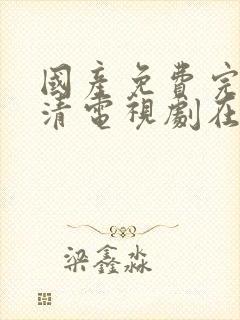 國產免費完
清電視劇在
梁鑫淼